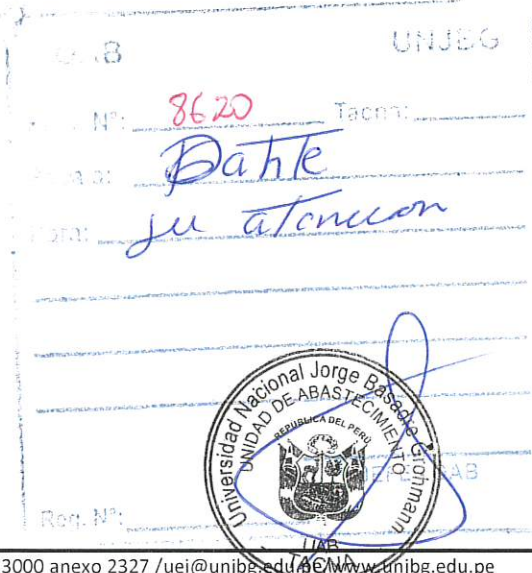 UNJBG
Nº: 8620 Tacna:
Dante
su atención
Universidad Nacional Jorge Basadre Grohmann
UNIDAD DE ABASTECIMIENTO
REPUBLICA DEL PERÚ
UAB
Reg. Nº:
TACNA
3000 anexo 2327 /uei@unjbg.edu.pe/www.unjbg.edu.pe